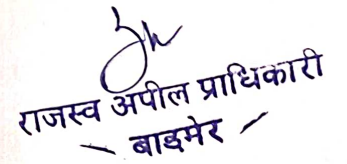 राजस्व अपील प्राधिकारी
- बाडमेर -